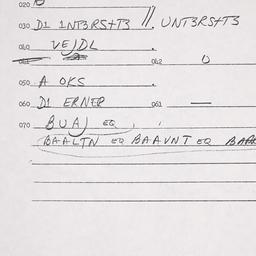 020
030 D1 1NT3RS+T3 //. UNT3RS+T3
040 VEJDL .
042 0
050 A OKS .
060 D1 ERNER 061 —
070 BUAJ EQ
BAALTN EQ BAAVNT EQ